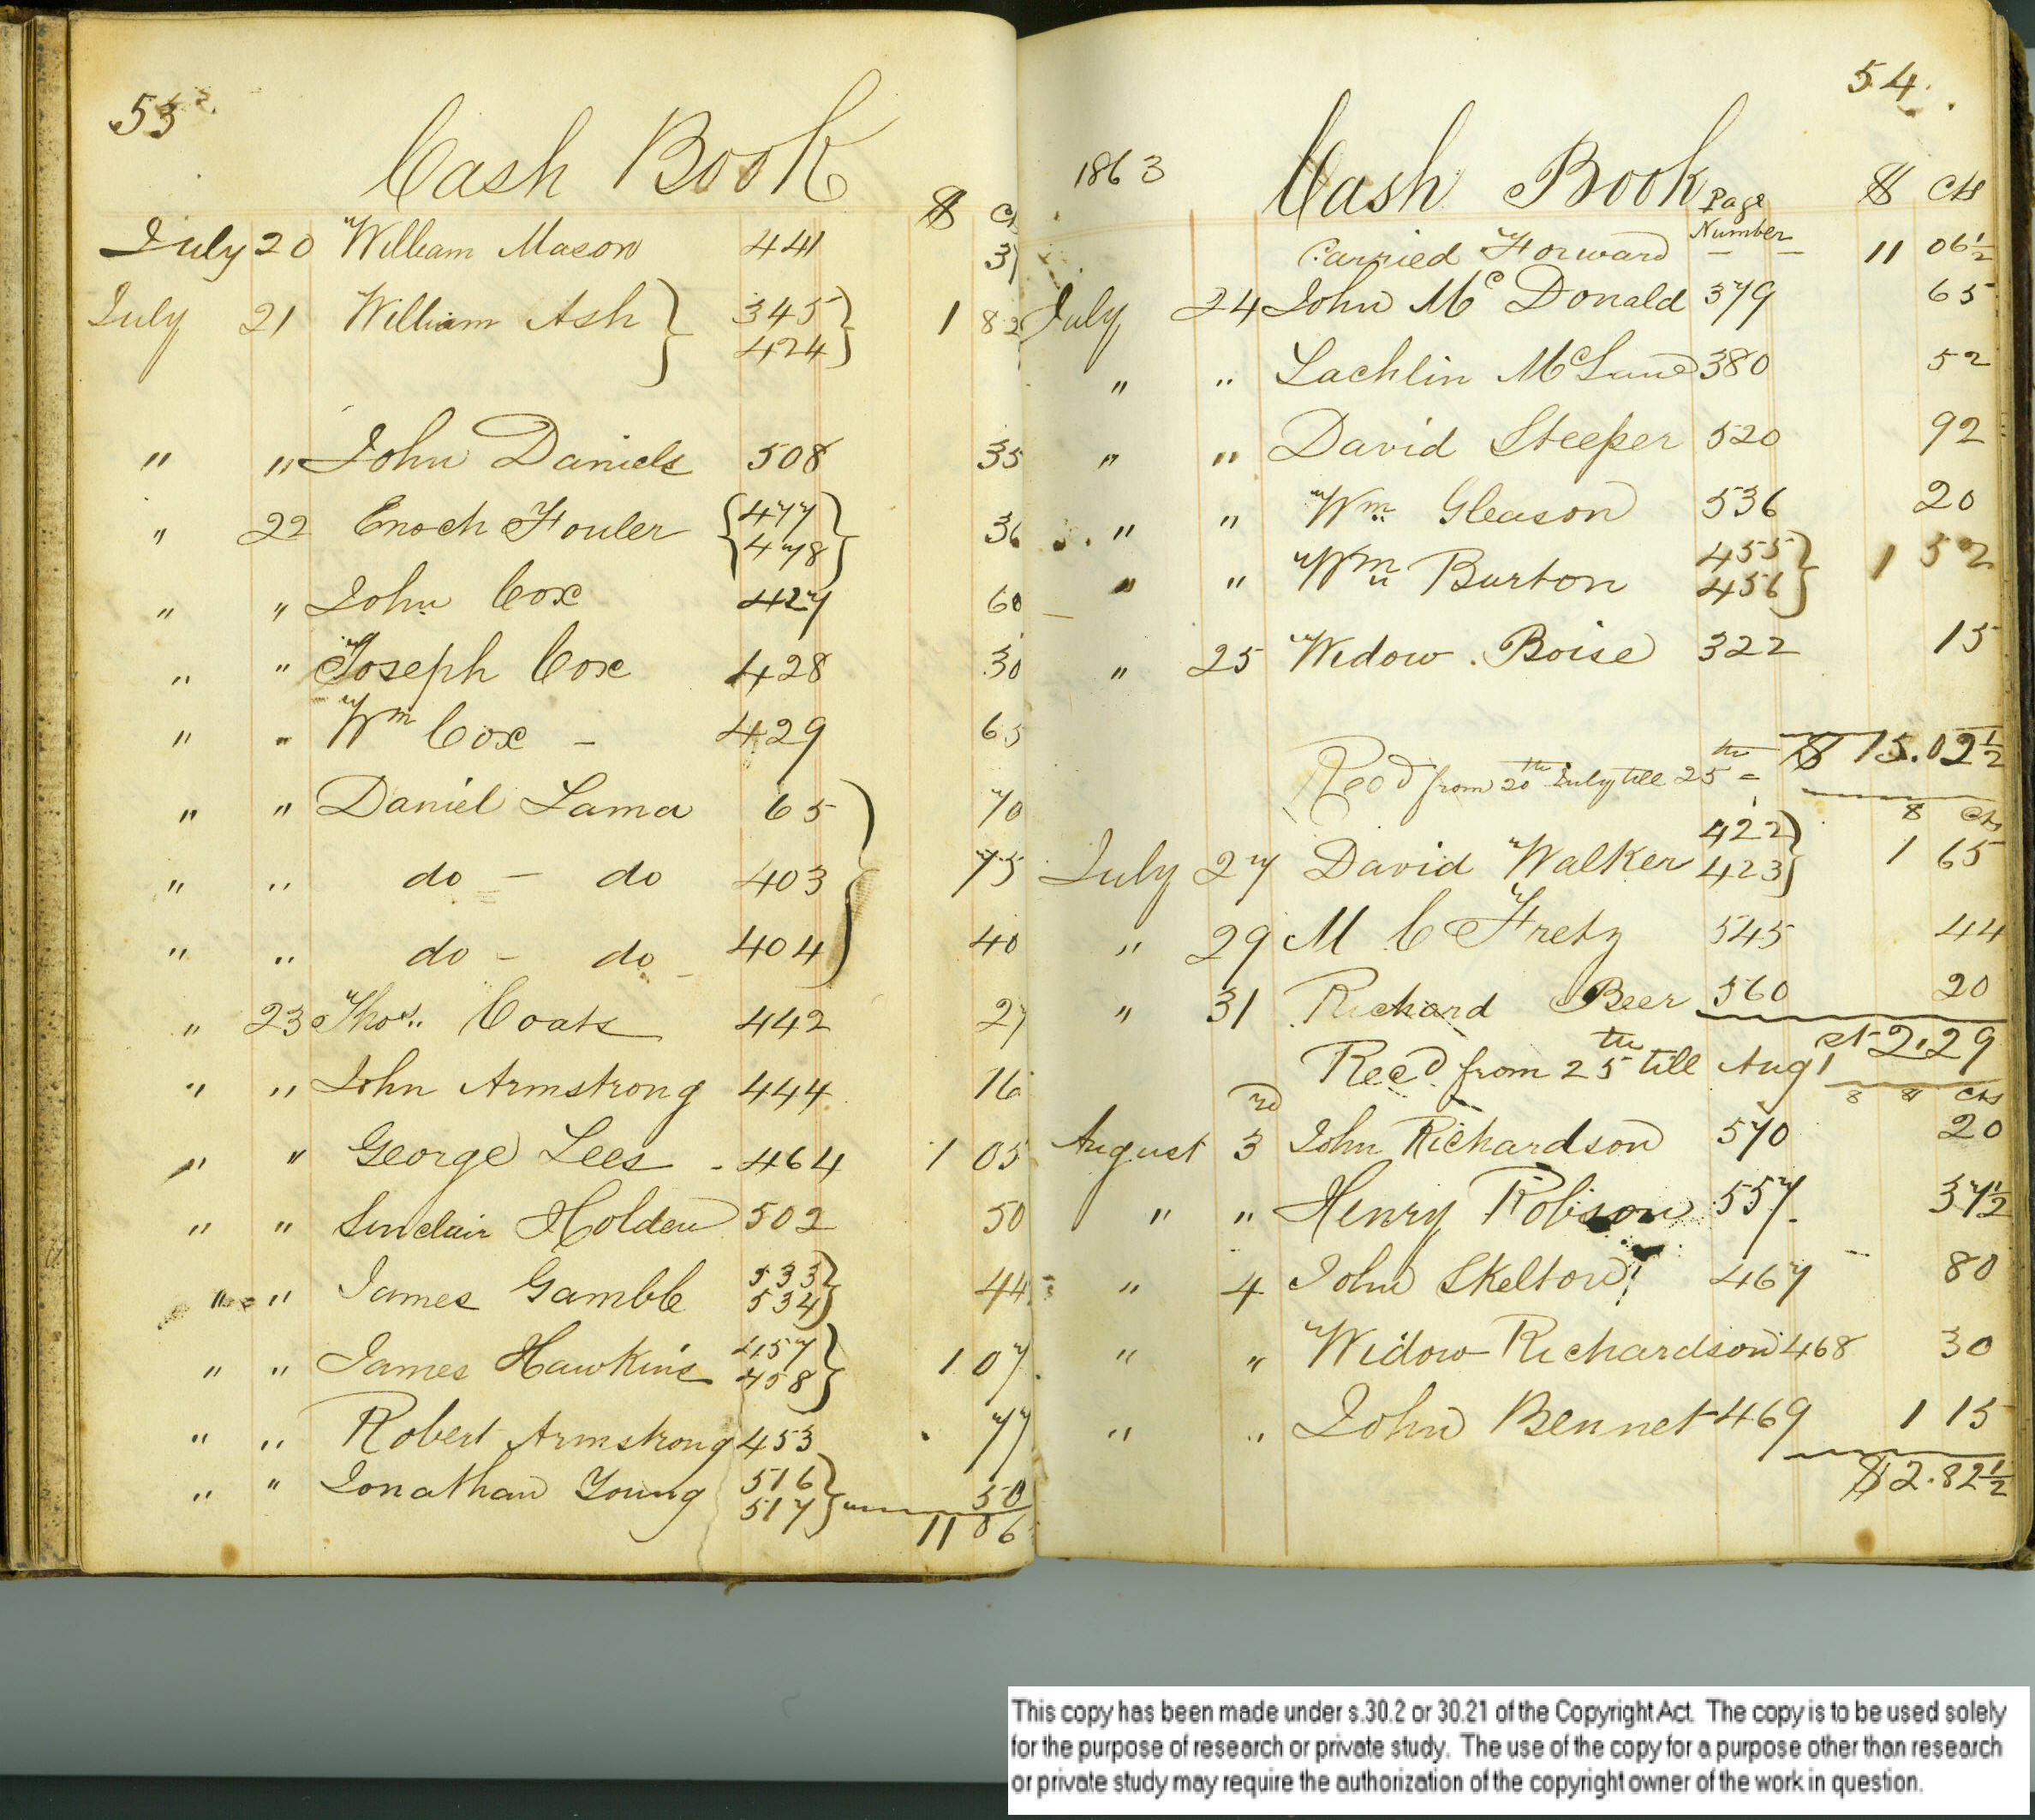 53
Cash Book
$ Ct
July 20 William Mason 441 37
July 21 William Ash } 345 } 1 82
424
" " John Daniels 508 35
" 22 Enoch Fouler { 477 } 36
478
" " John Cox 427 60
" " Joseph Cox 428 30
" " Wm Cox - 429 65
" " Daniel Lama 65 70
" " do - do 403 75
" " do - do 404 40
" 23 Thos. Coats 442 27
" " John Armstrong 444 16
" " George Lees - 464 1 05
" " Sinclair Holden 502 50
" " James Gamble 533 } 44
534
" " James Hawkins 457 } 1 07
458
" " Robert Armstrong 453 77
" " Jonathan Young 516 } 50
517
11 06
54.
1863 Cash Book Page $ Cts
Number
Carried Forward - - 11 06½
July 24 John Mc Donald 379 65
" " Lachlin 380 52
" " David Steeper 520 92
" " Wm Gleason 536 20
" " Wm Burton 455 } 1 52
456
" 25 Widow Boise 322 15
Recd from 20th July till 25th = $ 15.02½
$ cts
July 27 David Walker 422 } 1 65
423
" 29 M C Fretz 545 44
" 31 Richard Beer 560 20
Recd from 25th till Aug 1 st 2.29
$ cts
August 3rd John Richardson 570 20
" " Henry Robison 557 - 37½
" 4 John Skelton 467 80
" " Widow Richardson 468 30
" " John Bennet 469 1 15
$2.82½
This copy has been made under s.30.2 or 30.21 of the Copyright Act. The copy is to be used solely
for the purpose of research or private study. The use of the copy for a purpose other than research
or private study may require the authorization of the copyright owner of the work in question.